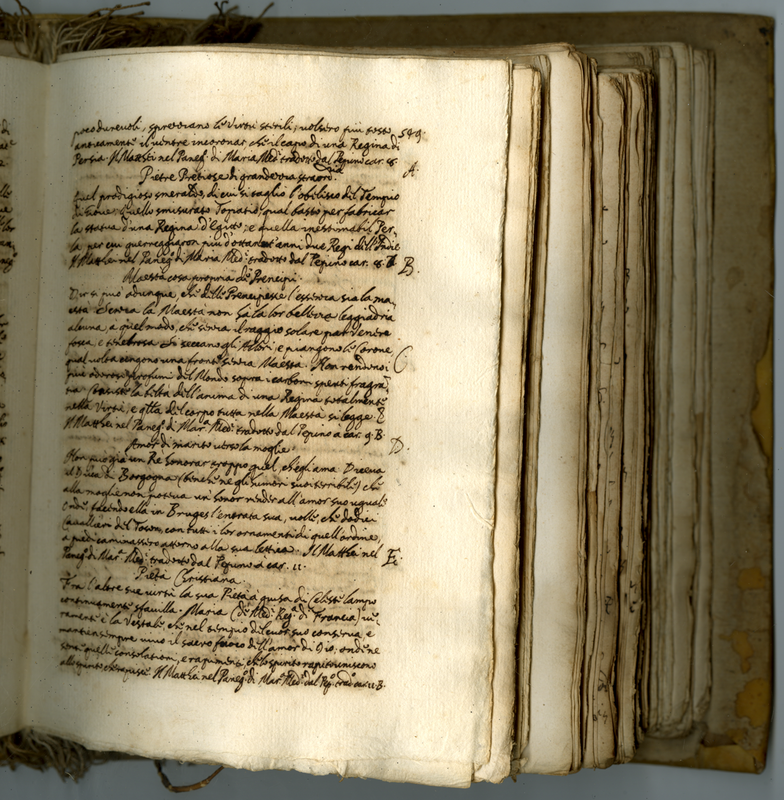 preo durevoli, sprezzano le Virtù sterili; volsero più tosto 549.
anticamente il ventre incoronar che il capo di una Regina di
Persia. Il Matthei nel Paneg. di Maria Med. tradotto dal Pepino car. 8. A.
Pietre Pretiose di grandezza straord.ria
Quel prodigioso smeraldo, di cui si taglio l'obelisco del Tempio
di Giove: quello smisurato Topatio, qual bastò per fabricar
la statua d'una Regina d'Egitto; e quella inestimabil Per,
la per cui guerreggiaron più d'ottanta anni due Regi dell'Indie
Il Matthei nel Paneg. di Maria Med. tradotto dal Pepino car. 8. B.
Maestà cosa propria de Prencipi.
Dir si può adunque, che delle Prencipesse l'essenza sia la ma,
està. Senza la Maestà non ha la lor bellezza leggiadria
alcuna, a quel modo, che senza il raggio solare par Venere
fosca, e tenebrosa. Si seccano gli Allori e piangono le Corone
qual volta cengono una fronte senza Maestà. Non rendono i C.
più odorosi profumi del Mondo sopra i carboni spenti fragra,
tia. Consiste la beltà dell'anima di una Regina totalmente
nella Virtù, e qlla del corpo tutta nella Maestà si legge.
Il Matthei nel Paneg. di Mar.a Med. tradotto dal Pepino a car. 9. B.
Amor di marito verso la moglie. D.
Non può già un Re honorar troppo quel, ch'egli ama. Diceva
il Duca di Borgogna (benche ne gli humori suoi terribile) che
alla moglie non poteva un honor render all'amor suo uguale
onde facendo ella in Bruges l'entrata sua, volle che dodici
Cavallieri del Toson, con tutti i lor ornamenti di quell'ordine,
a piedi caminassero attorno alla sua lettica. Il Matthei nel
Paneg. di Mar.a Med. tradotto dal Pepino a car. 11. E.
Pietà Christiana.
Fra l'altre sue virtù la sua Pietà a guisa di Celeste lampo
continuamente sfavilla. Maria (de Med. Reg.a di Francia) ve,
ramente è la Vestale che nel tempio del cuor suo conserva, e
mantien sempre vivo il sacro fuoco dell'amor di Dio; onde ne
sente quelle consolationi, e rapimenti che lo spirito rapito uniscono
allo spirito che rapisce. Il Matthei nel Paneg. di Mar.a Med. dal Pep. trad. car. 11. B.